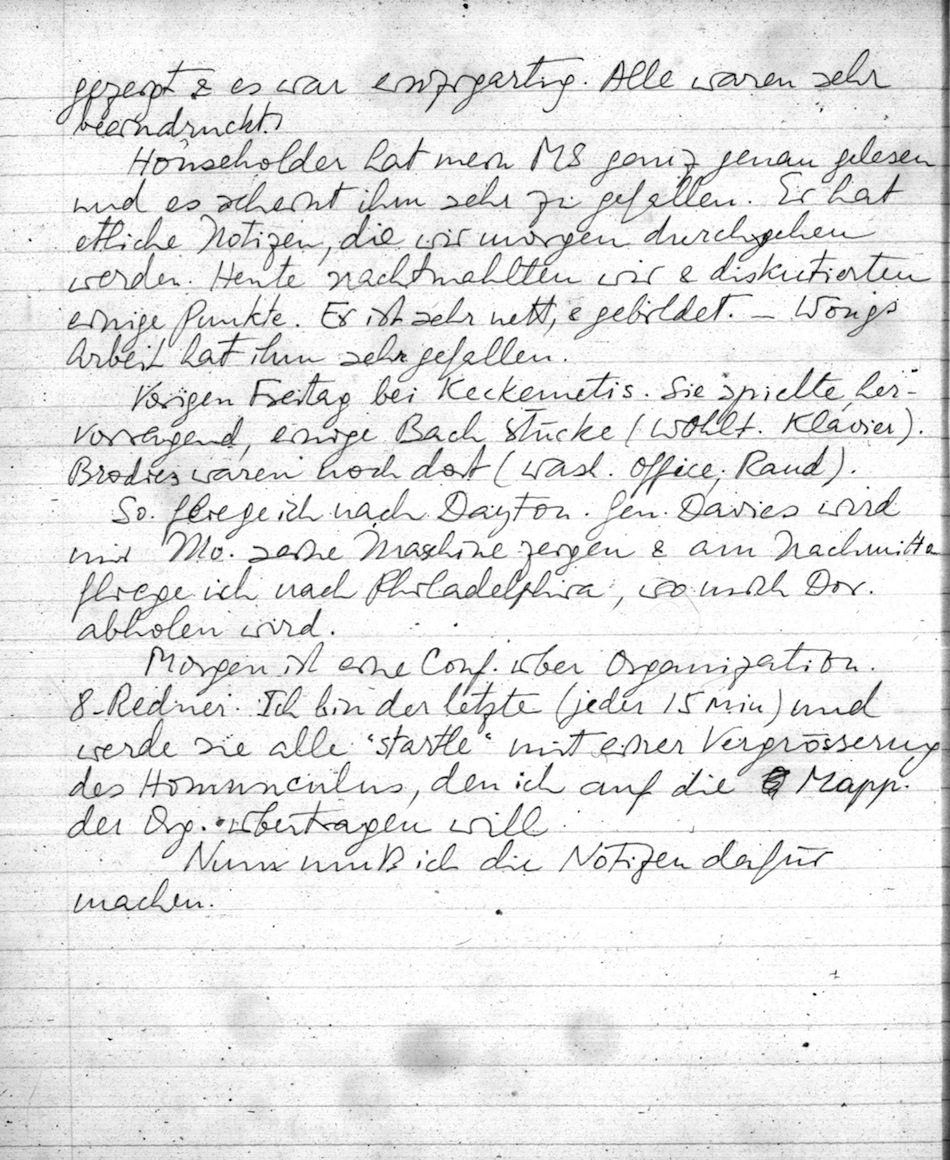 gezeigt & es war einzigartig. Alle waren sehr
beeindruckt.
Householder hat mein MS ganz genau gelesen
und es scheint ihm sehr zu gefallen. Er hat
etliche Notizen, die wir morgen durchgehen
werden. Heute nachtmahlten wir & diskutierten
einige Punkte. Er ist sehr nett, & gebildet. – Wongs
Arbeit hat ihm sehr gefallen.
Vorigen Freitag bei Keckemetis. Sie spielte, her-
vorragend, einige Bach Stücke (Wohlt. Klavier).
Brodies waren noch dort (Wash. Office, Rand).
So. fliege ich nach Dayton. Gen. Davies wird
mir Mo. seine Maschine zeigen & am Nachmitta
fliege ich nach Philadelphia, wo mich Dor.
abholen wird.
Morgen ist eine Conf. über Organization.
8-Redner. Ich bin der letzte (jeder 15 min) und
werde sie alle "startle" mit einer Vergrösserung
des Homunculus, den ich auf die Mapp.
der Org. übertragen will.
Nun muß ich die Notizen dafür
machen.